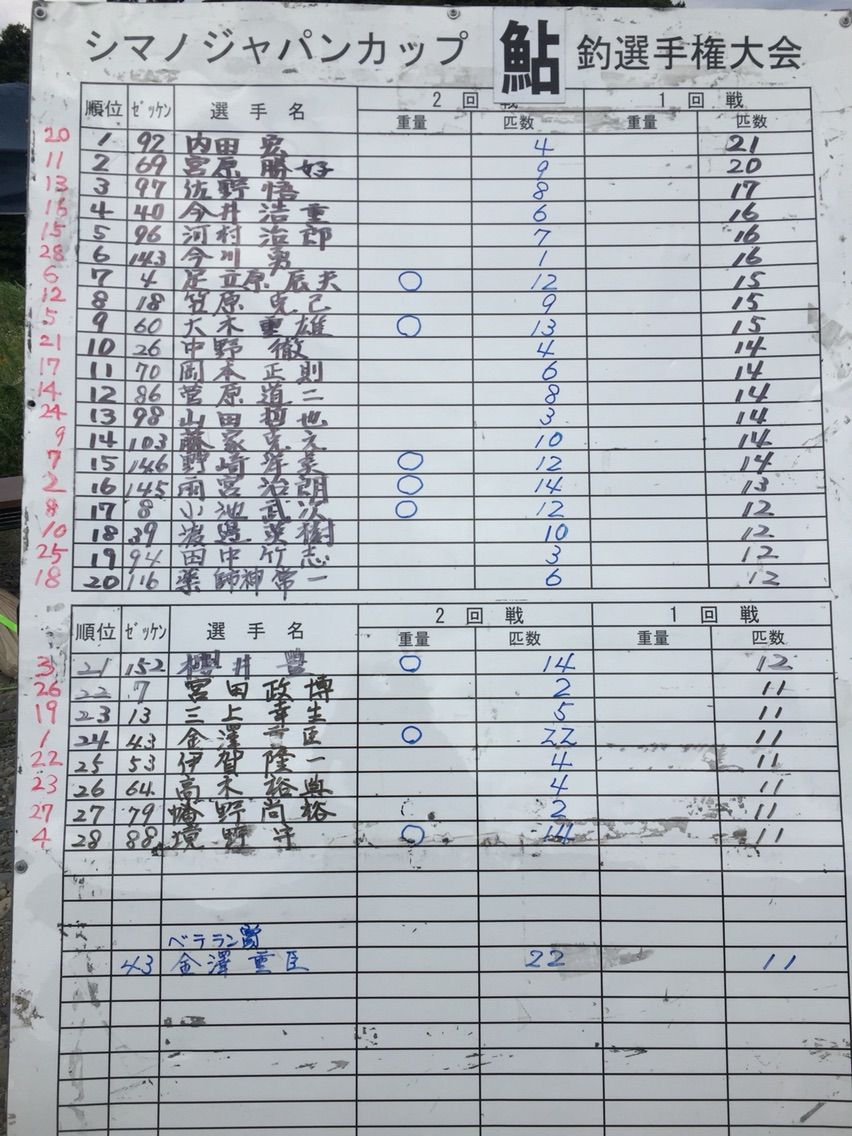 シマノジャパンカップ 鮎 釣選手権大会
順位 ｾﾞｯｹﾝ 選手名 2回戦 1回戦
重量 匹数 重量 匹数
20 1 92 内田 宏 4 21
11 2 69 宮原 勝好 9 20
13 3 97 佐野 悟 8 17
16 4 40 今井 浩重 6 16
15 5 96 河村 治郎 7 16
28 6 143 今川 勇 1 16
6 7 4 足立原 辰夫 ○ 12 15
12 8 18 笠原 克己 9 15
5 9 60 大木 重雄 ○ 13 15
21 10 26 中野 徹 4 14
17 11 70 岡本 正則 6 14
14 12 86 菅原 道二 8 14
24 13 98 山田 哲也 3 14
9 14 103 藤家 克 10 14
7 15 146 野崎 ○ 12 14
2 16 145 雨宮 治朗 ○ 14 13
8 17 8 小池 武次 ○ 12 12
10 18 39 渡邉 英樹 10 12
25 19 94 田中 竹志 3 12
18 20 116 薬師神 常一 6 12
順位 ｾﾞｯｹﾝ 選手名 2回戦 1回戦
重量 匹数 重量 匹数
3 21 152 櫻井 豊 ○ 14 12
26 22 7 宮田 政博 2 11
19 23 13 三上 幸生 5 11
1 24 43 金澤 臣 ○ 22 11
22 25 53 伊賀 隆一 4 11
23 26 64 高木 裕 4 11
27 27 79 幡野 尚裕 2 11
4 28 88 境野 守 ○ 14 11
ベテラン賞
43 金澤 重臣 22 11